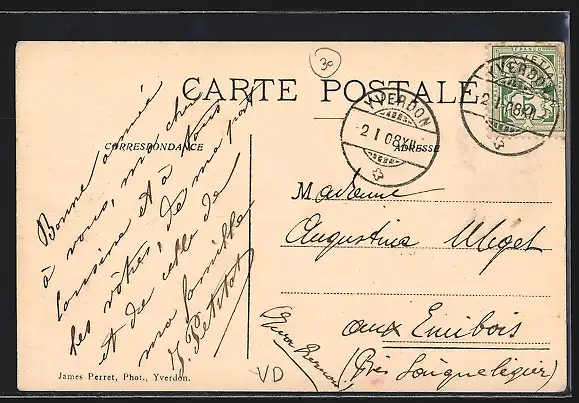 30
CARTE POSTALE
HELVETIA
FRANCO
5
YVERDON
2 I 08 XII
YVERDON
2 I 08 XII
CORRESPONDANCE
ADRESSE
Bonne année
à vous, mon cher
cousine et à tous
les vôtres, de ma part
et de celle de
ma famille
J. Petitot
Madame
Augustine
aux Emibois
(Près Saignelégier)
VD
James Perret, Phot., Yverdon.